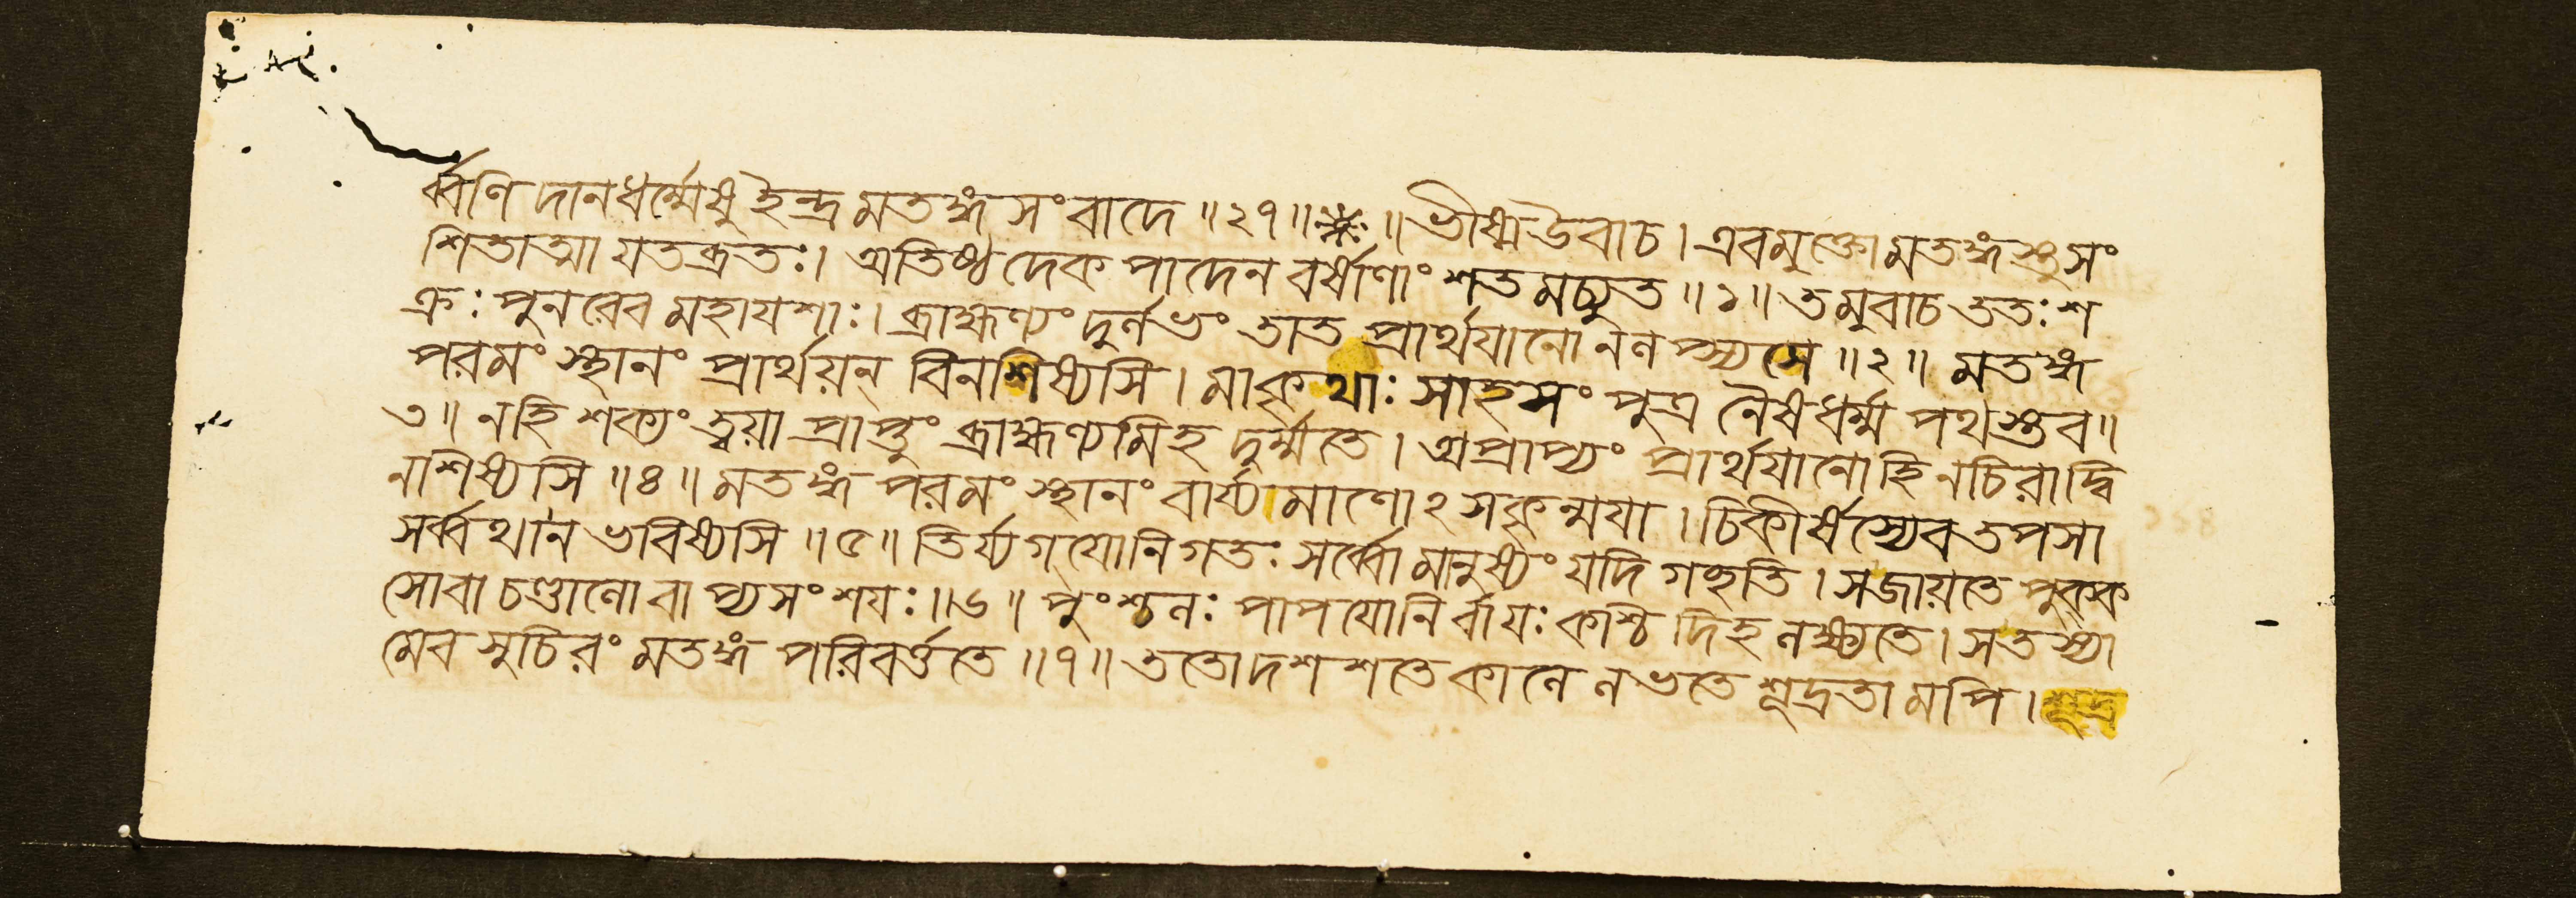 র্ব্বণি দানধর্ম্মেষু ইন্দ্র মতঙ্গ সংবাদে ॥ ২৭ ॥ ※ ॥ ভীষ্ম উবাচ । এবমুক্তো মতঙ্গস্তু সং
শিতাত্মা যতব্রতঃ । অতিষ্ঠদেক পাদেন বর্ষাণাং শতমচ্যুত ॥ ১ ॥ তমুবাচ ততঃ শ
ক্রঃ পুনরেব মহাযশাঃ । ব্রাহ্মণ্যং দুর্লভং তাত প্রার্থযানো ন লপ্স্যসে ॥ ২ ॥ মতঙ্গ
পরমং স্থানং প্রার্থয়ন্ বিনশিষ্যসি । মা কৃথাঃ সাহসং পুত্র নৈষ ধর্ম্ম পথস্তব ॥
৩ ॥ ন হি শক্যং ত্বয়া প্রাপ্তুং ব্রাহ্মণ্যমিহ দুর্ম্মতে । অপ্রাপ্যং প্রার্থযানো হি ন চিরাদ্বি
নশিষ্যসি ॥ ৪ ॥ মতঙ্গ পরমং স্থানং বার্য্যমাণোঽসকৃন্ময়া । চিকীর্ষস্যেব তপসা
সর্ব্বথা ন ভবিষ্যসি ॥ ৫ ॥ তির্য্যগ্যোনি গতঃ সর্ব্বো মানুষ্যং যদি গছতি । স জায়তে পুক্ক
সো বা চণ্ডালো বাপ্যসংশযঃ ॥ ৬ ॥ পুংশ্চলঃ পাপযোনির্বা যঃ কশ্চিদিহ লক্ষ্যতে । স তস্যা
মেব সুচিরং মতঙ্গ পরিবর্ত্ততে ॥ ৭ ॥ ততো দশশতে কালে লভতে শূদ্রতামপি । শূদ্র